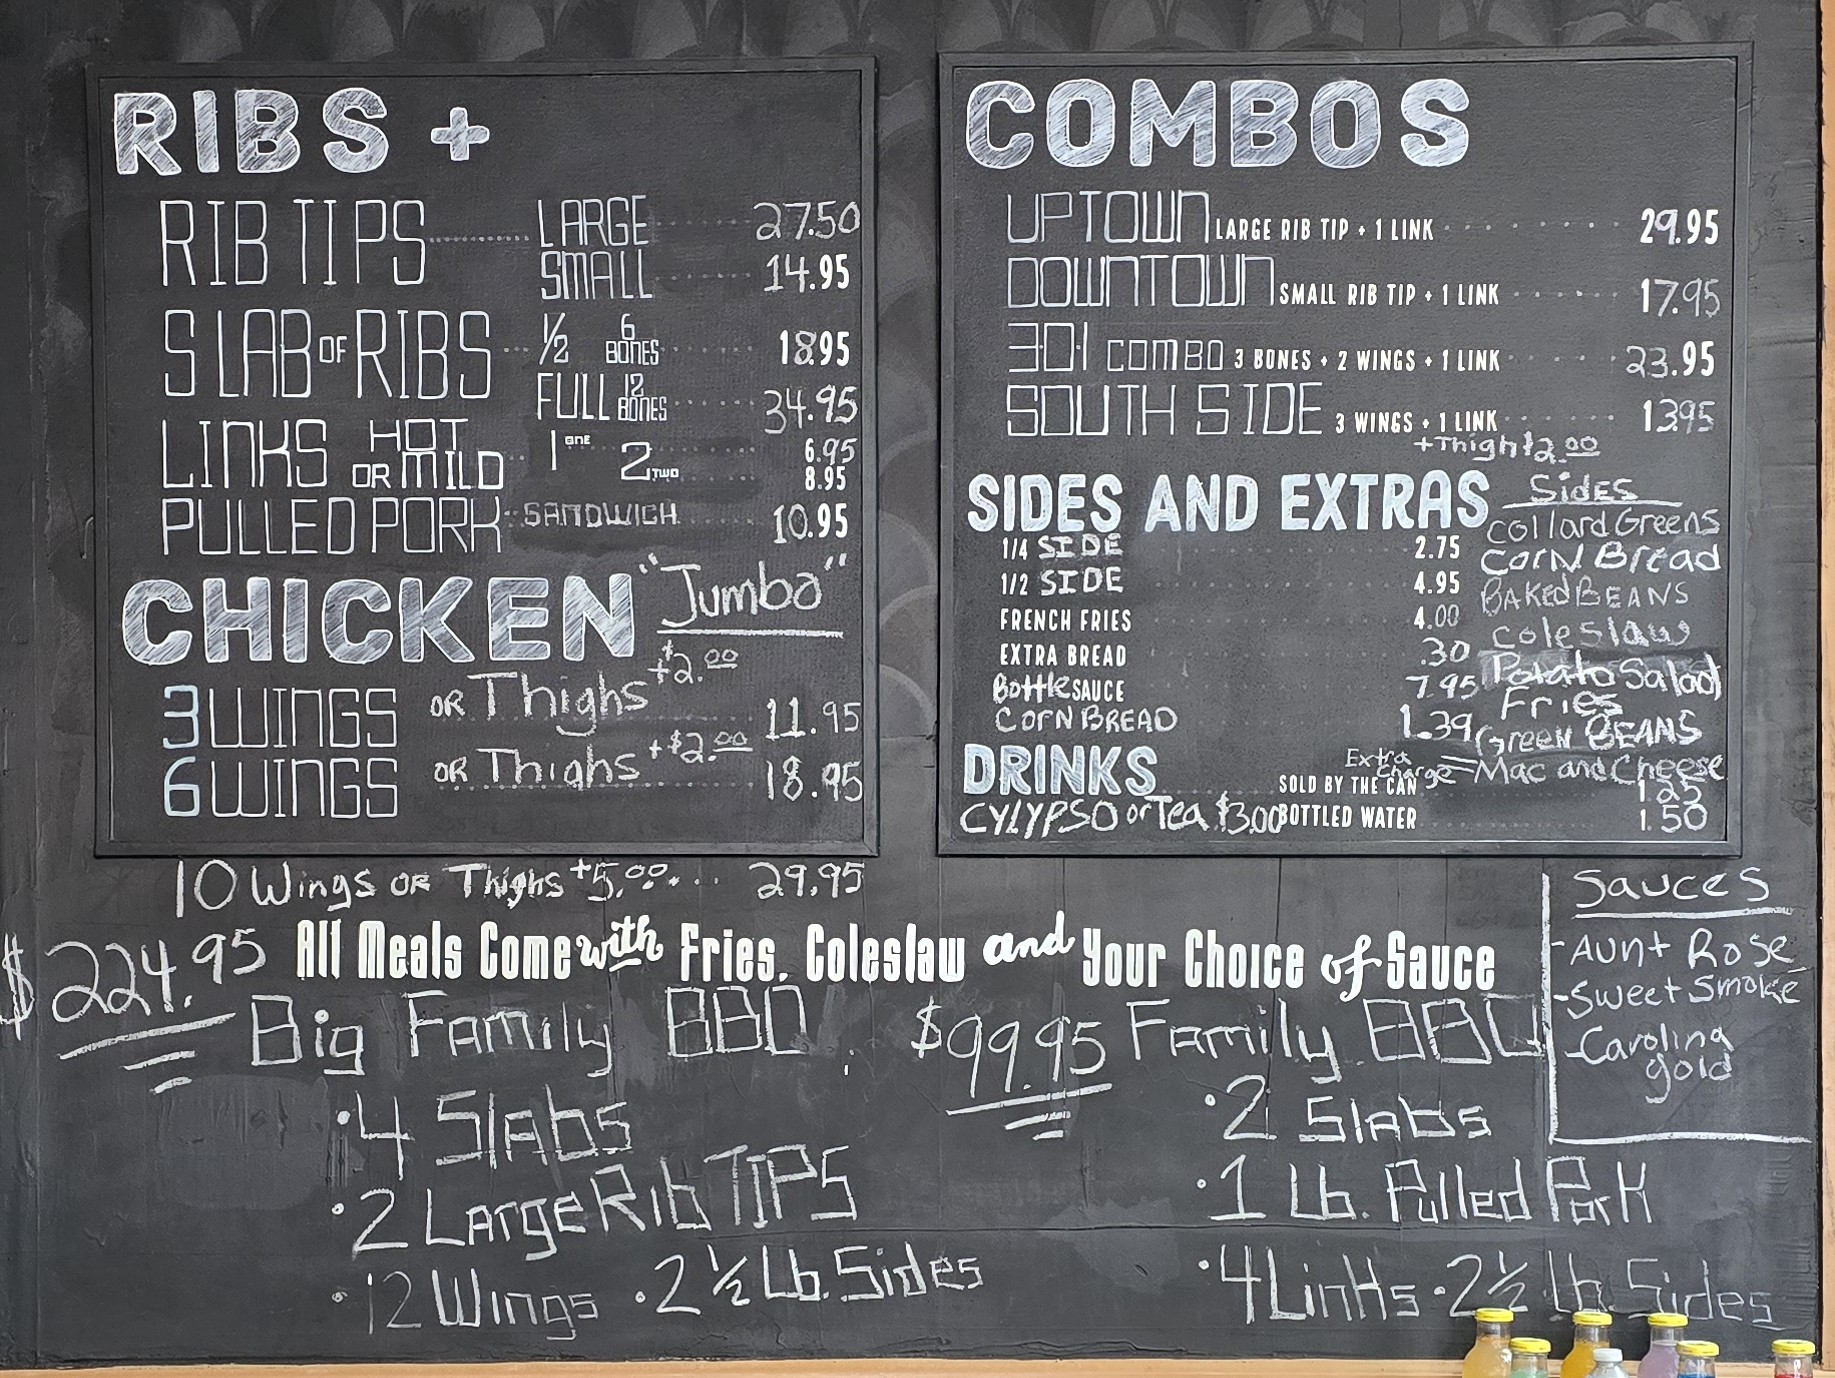 RIBS +
RIB TIPS LARGE 27.50
SMALL 14.95
SLAB OF RIBS 1/2 6 BONES 18.95
FULL 12 BONES 34.95
LINKS HOT OR MILD 1 ONE 6.95
2 TWO 8.95
PULLED PORK SANDWICH 10.95
CHICKEN "Jumbo"
3 WINGS OR Thighs +$2.00 11.95
6 WINGS OR Thighs +$2.00 18.95
10 Wings OR Thighs +5.00 ... 29.95
COMBOS
UPTOWN LARGE RIB TIP + 1 LINK 29.95
DOWNTOWN SMALL RIB TIP + 1 LINK 17.95
301 COMBO 3 BONES + 2 WINGS + 1 LINK 23.95
SOUTH SIDE 3 WINGS + 1 LINK 13.95
+Thigh $2.00
SIDES AND EXTRAS
1/4 SIDE 2.75
1/2 SIDE 4.95
FRENCH FRIES 4.00
EXTRA BREAD .30
Bottle SAUCE 7.95
CORN BREAD 1.39
Sides
Collard Greens
Corn Bread
BAKED BEANS
Coleslaw
Potato Salad
Fries
Green BEANS
Extra Charge = Mac and Cheese
DRINKS
SOLD BY THE CAN 1.25
CYLYPSO or Tea $3.00
BOTTLED WATER 1.50
All Meals Come with Fries, Coleslaw and Your Choice of Sauce
Sauces
- Aunt Rose
- Sweet Smoke
- Carolina
gold
$224.95
Big Family BBQ
• 4 Slabs
• 2 Large Rib TIPS
• 12 Wings • 2 1/2 Lb. Sides
$99.95 Family BBQ
• 2 Slabs
• 1 Lb. Pulled Pork
• 4 Links • 2 1/2 lb. Sides